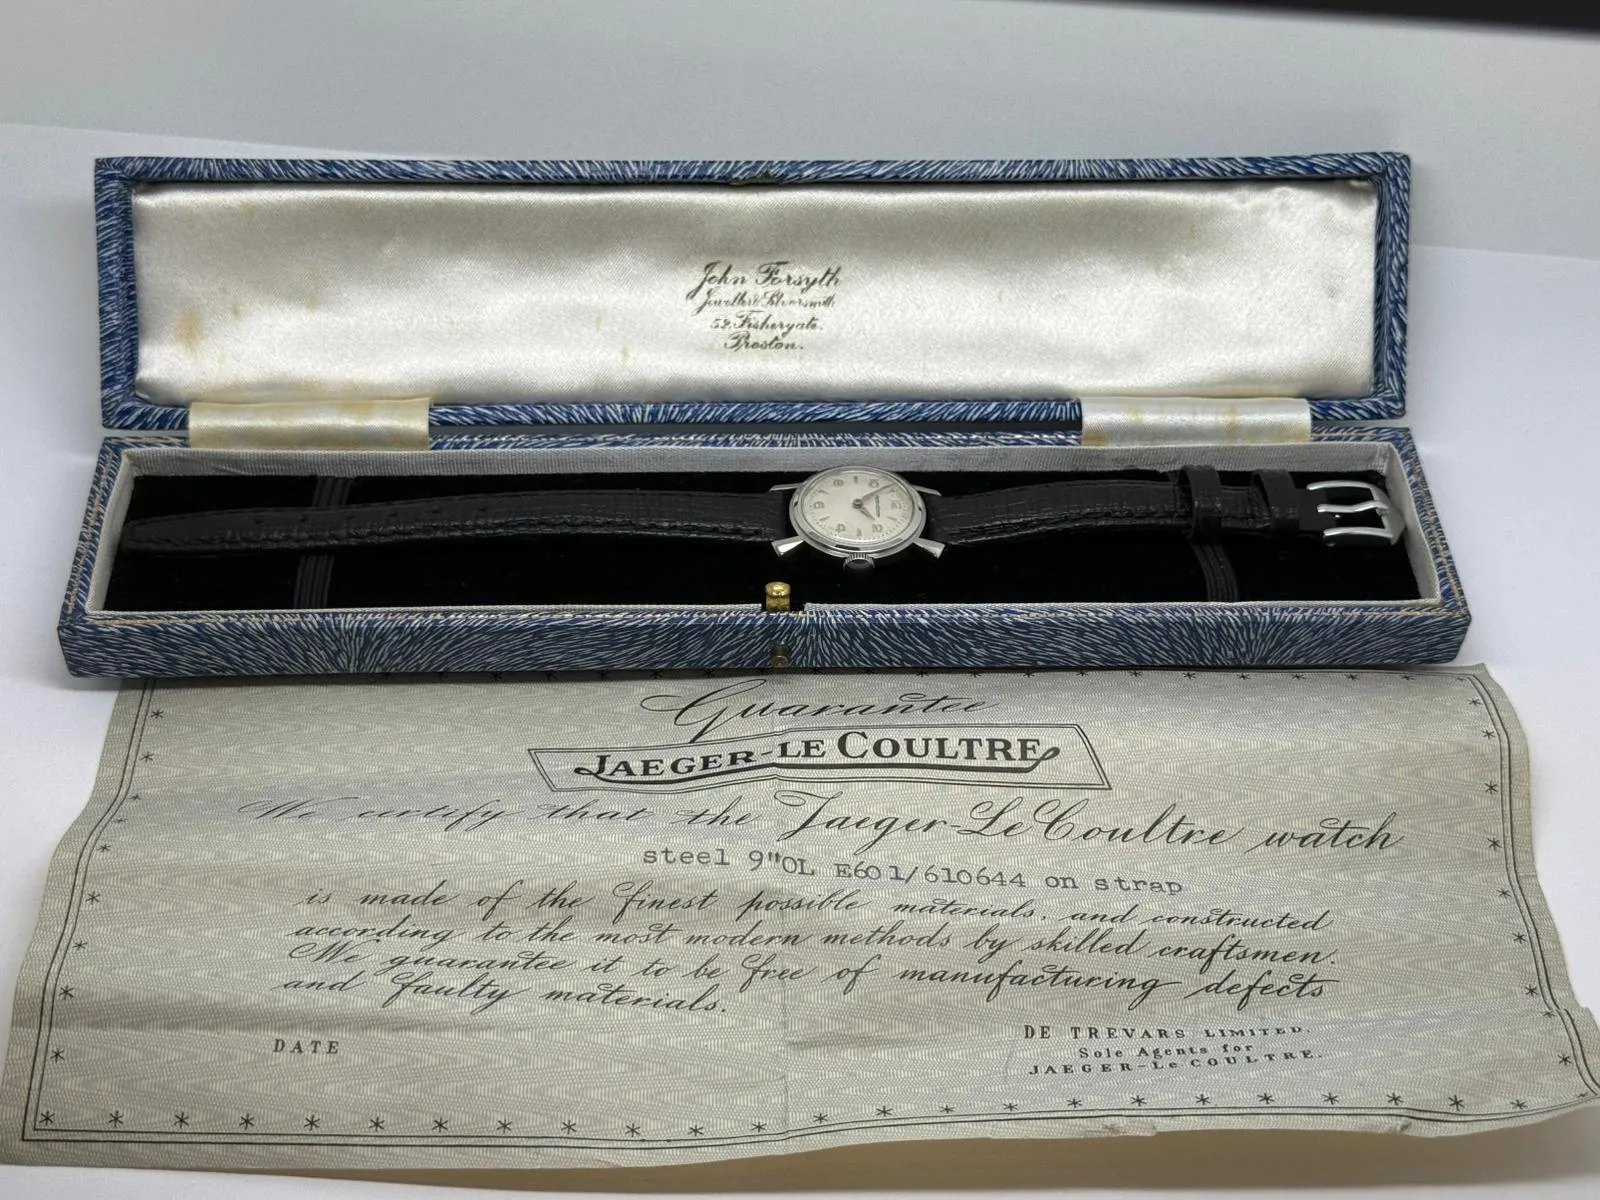 John Forsyth
Jeweller & Silversmith
52, Fishergate.
Preston.
Guarantee
JAEGER-LECOULTRE
We certify that the Jaeger-LeCoultre watch
steel 9"OL E601/610644 on strap
is made of the finest possible materials, and constructed
according to the most modern methods by skilled craftsmen.
We guarantee it to be free of manufacturing defects
and faulty materials.
DATE
DE TREVARS LIMITED.
Sole Agents for
JAEGER-LeCOULTRE.